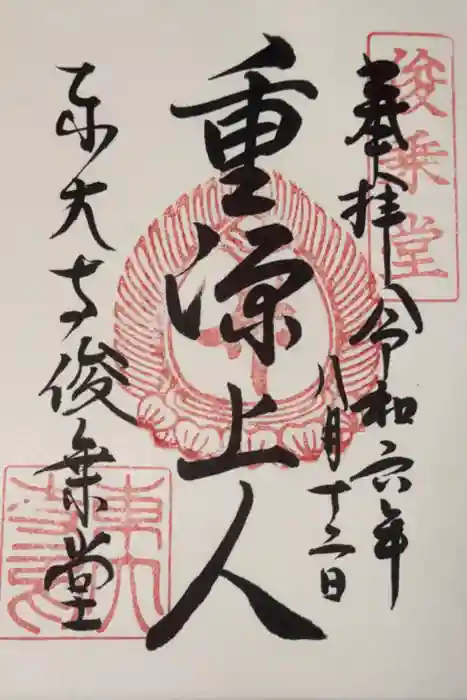 俊乗堂
奉拝 令和六年
八月十三日
重源上人
東大寺俊乗堂
東大寺印